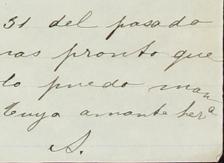 31 del pasado
as pronto que
lo puedo man
Tuya amante her^a
S.